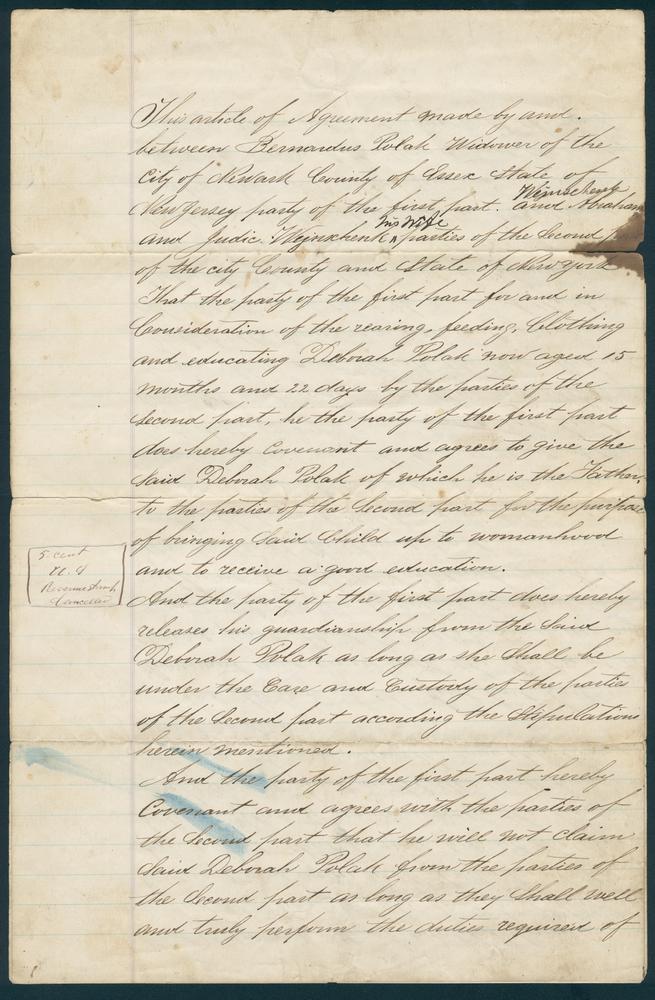 This article of Agreement made by and.
between Bernardus Polak Widower of the
City of Newark County of Essex State of
New Jersey party of the first part. and Abraham Weinschenk
and Judic. Weinschenk his Wife parties of the Second
of the city County and State of New York
That the party of the first part for and in
Consideration of the rearing, feeding, Clothing
and educating Deborah Polak now aged 15
months and 22 days by the parties of the
Second part, he the party of the first part
does hereby Covenant and agrees to give the
Said Deborah Polak of which he is the Father,
to the parties of the Second part for the purpose
of bringing Said Child up to womanhood
and to receive a good education.
5 cent
U. S
Revenue Stamp
Cancelled
And the party of the first part does hereby
releases his guardianship from the Said
Deborah Polak as long as she Shall be
under the Care and Custody of the parties
of the Second part according the Stipulations
herein mentioned.
And the party of the first part hereby
Covenant and agrees with the parties of
the Second part that he will not Claim
Said Deborah Polak from the parties of
the Second part as long as they Shall well
and truly perform the duties required of